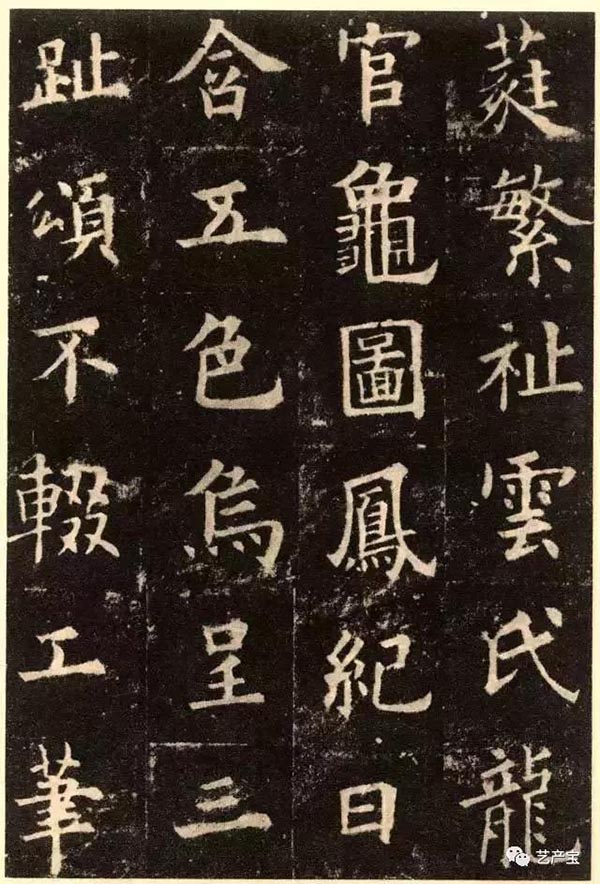 蕤繁祉雲氏龍
官龜圖鳳紀日
含五色烏呈三
趾頌不輟工筆
艺产宝